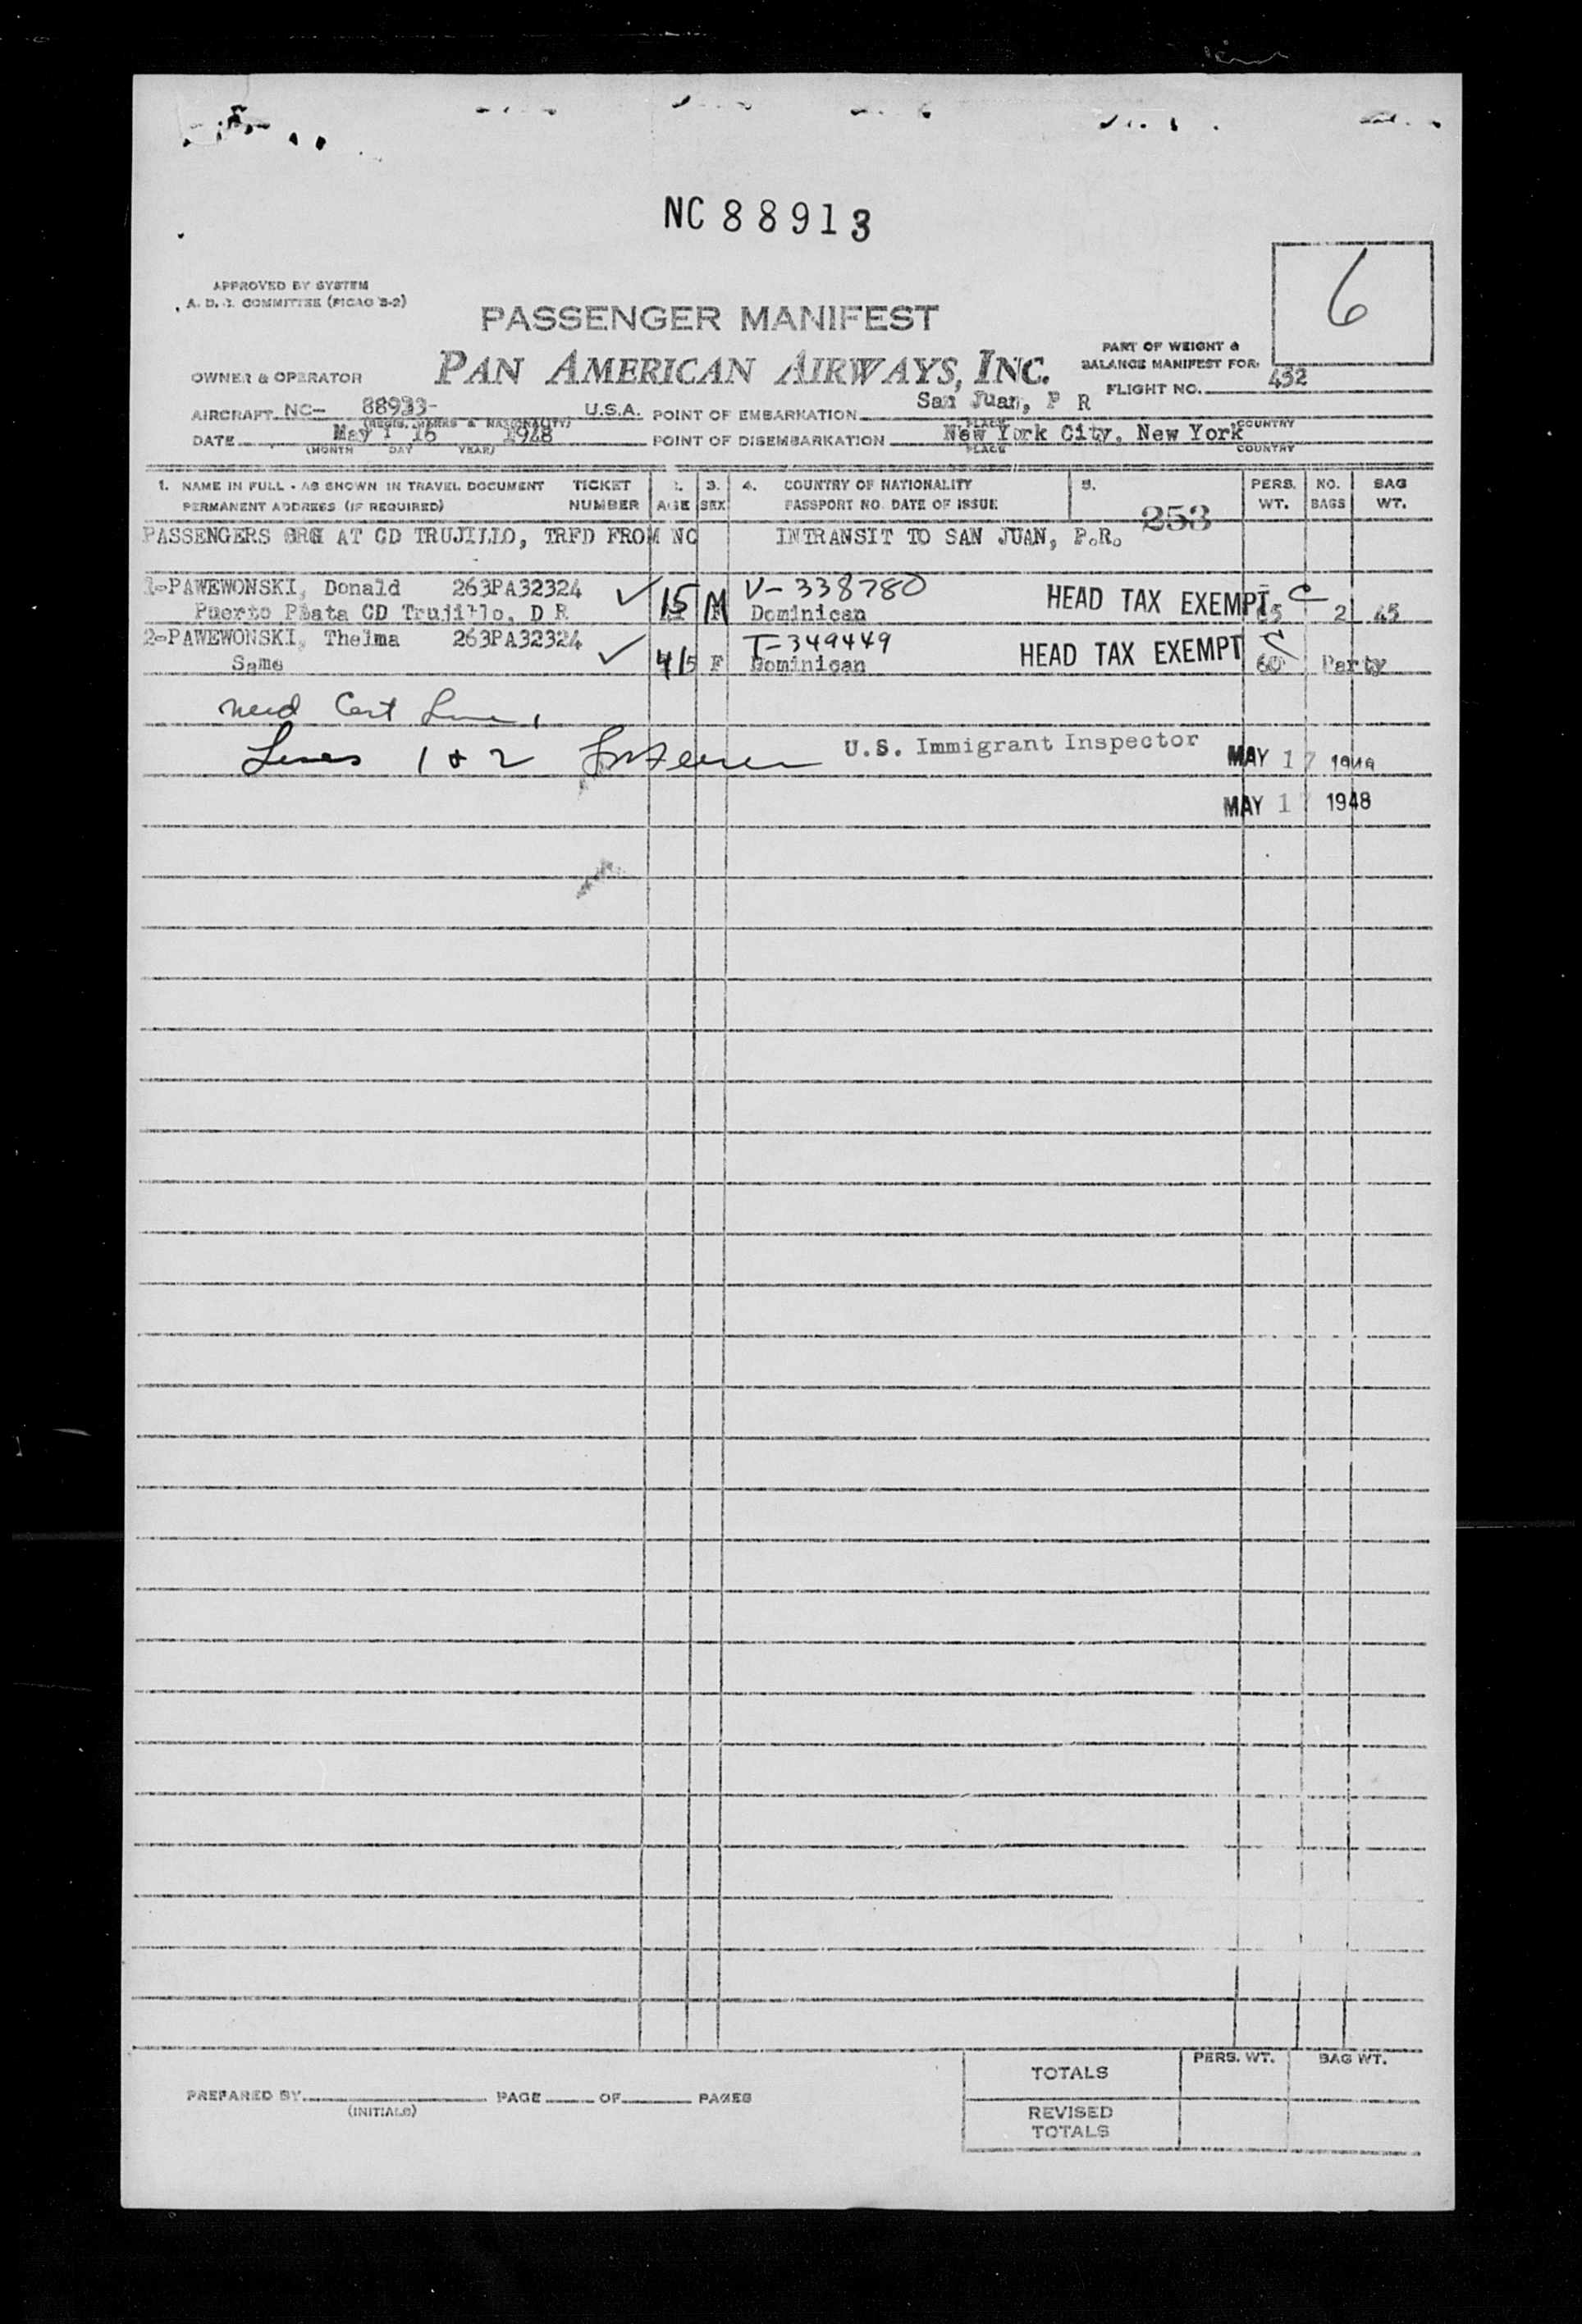 NC88913
6
APPROVED BY SYSTEM
A. D. COMMITTEE (PICAO S-2)
PASSENGER MANIFEST
PAN AMERICAN AIRWAYS, INC.
PART OF WEIGHT &
BALANCE MANIFEST FOR
FLIGHT NO. 432
OWNER & OPERATOR
AIRCRAFT NC- U.S.A. POINT OF EMBARKATION San Juan, P R
(REGIS. MARKS & NATIONALITY) PLACE COUNTRY
DATE May 16 1948 POINT OF DISEMBARKATION New York City, New York
(MONTH DAY YEAR) PLACE COUNTRY
1. NAME IN FULL - AS SHOWN IN TRAVEL DOCUMENT TICKET 2. 3. 4. COUNTRY OF NATIONALITY 5. PERS. NO. BAG
PERMANENT ADDRESS (IF REQUIRED) NUMBER AGE SEX PASSPORT NO. DATE OF ISSUE WT. BAGS WT.
253
PASSENGERS ORG AT CD TRUJILLO, TRFD FROM NC INTRANSIT TO SAN JUAN, P.R.
1-PAWEWONSKI, Donald 263PA32324 15 M V-338780 HEAD TAX EXEMPT C
Puerto Plata CD Trujillo, D R Dominican 2 45
2-PAWEWONSKI, Thelma 263PA32324 T-349449 HEAD TAX EXEMPT
Same F Dominican 60 Party
need Cert
Lines 1 & 2 U.S. Immigrant Inspector MAY 17
MAY 1 1948
PREPARED BY PAGE OF PAGES
(INITIALS)
PERS. WT. BAG WT.
TOTALS
REVISED
TOTALS